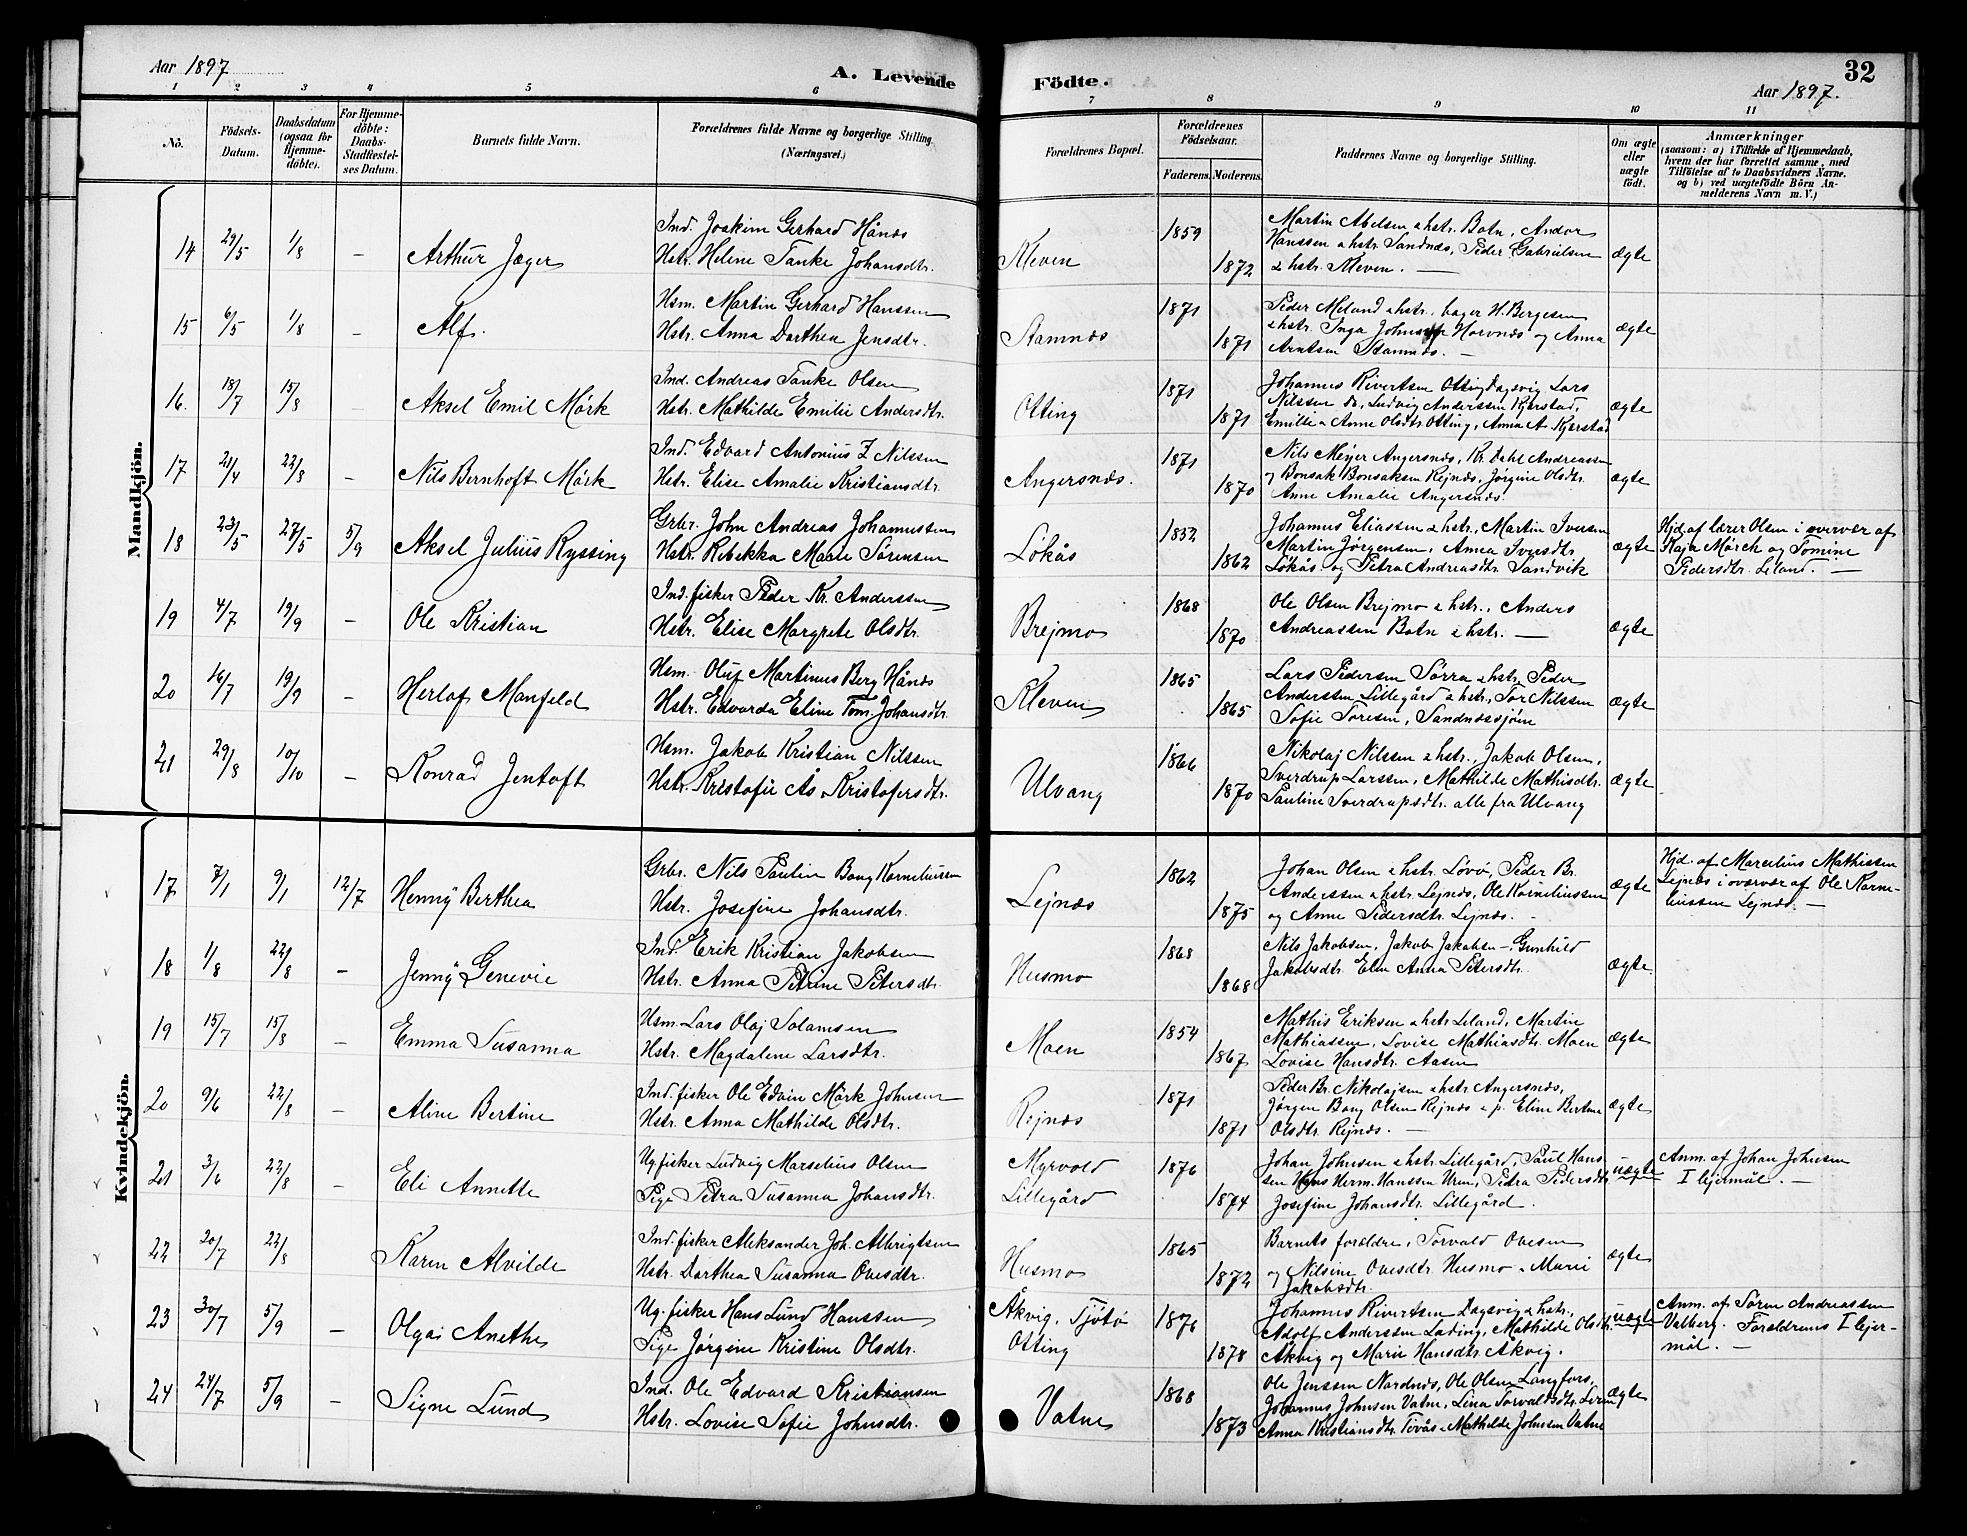 Aar 1897
A. Levende
Födte.
32
Aar 1897.
1 2 3 4 5 6 7 8 9 10 11
No.
Födsels-Datum.
Daabsdatum (ogsaa for Hjemme-döbte).
For Hjemme-döbte: Daabs-Stadfæstel-ses Datum.
Barnets fulde Navn.
Forældrenes fulde Navne og borgerlige Stilling
(Næringsvei.)
Forældrenes Bopæl.
Forældrenes Födselsaar.
Faderens. Moderens.
Faddernes Navne og borgerlige Stilling.
Om ægte eller uægte födt.
Anmærkninger
(saasom: a) i Tilfælde af Hjemmedaab,
hvem der har forrettet samme, med
Tilföielse af to Daabsvidners Navne.
og b) ved uægtefödte Börn An-
melderens Navn m. V.)
Mandkjön.
14 29/5 1/8 – Arthur Jæger
Ind. Joakim Gerhard Hånes
Hstr. Heline Tanke Johansdtr.
Kleven 1859 1872
Martin Abelsen & hstr. Botn, Andor
Hanssen & hstr. Sandnæs, Peder Gabrielsen
& hstr. Kleven. —
ægte
15 6/5 1/8 – Alf.
Hsm. Martin Gerhard Hanssen
Hstr. Anna Dorthea Jensdtr.
Stamnæs 1871 1871
Peder Meland & hstr. bager H. Bergesen
& hstr. Inga Johnsen Horvnæs og Anna
Arntsen Stamnæs. —
ægte
16. 18/7 15/8 – Aksel Emil Mörk
Ind. Andreas Tanke Olsen
Hstr. Mathilde Emilie Andersdtr.
Otting 1871 1871
Johannes Rivertsen Otting Dagsvig Lars
Nilssen do, Ludvig Anderssen Kjerstad,
Emilie & Anne Olsdtr. Otting, Anna A Kjerstad
ægte
17 21/4 22/8 – Nils Bernhoft Mörk
Ind. Edvard Antonius Z Nilssen
Hstr. Elise Amalie Kristiansdtr.
Angersnæs. 1871 1870
Nils Meyer Angersnæs, Kr. Dahl Andreassen
og Bonsak Bonsaksen Rejnæs, Jørgine Olsdtr.
Anne Amalie Angersnæs
ægte
18 23/5 27/5 5/9 Aksel Julius Ryssing
Grbr. John Andreas Johannessen
Hstr. Rebekka Marie Sörensen
Lökås 1852 1862
Johannes Eliassen & hstr., Martin Iversen
Martin Jørgensen, Anna Iversdtr.
Lökås og Petra Andreasdtr. Sandvik
ægte
Hjd. af lærer Olsen i overvær af
Kaja Mörch og Tomine
Pedersdtr. Leland. —
19 4/7 19/9 – Ole Kristian
Ind. fisker Peder Kr. Anderssen
Hstr. Elise Margrete Olsdtr.
Brejmo 1868 1870
Ole Olsen Brejmo & hstr., Anders
Andreassen Botn & hstr. —
ægte
20 16/7 19/9 – Herlof Manfeld
Hsm. Oluf Martinus Berg Hånes
Hstr. Edvarda Eline Tom. Johansdtr.
Kleven 1865 1865
Lars Pedersen Sörra & hstr. Peder
Anderssen Lillegård & hstr., Tor Nilssen
Sofie Toresen, Sandnæssjøen
ægte
21 29/8 10/10 – Konrad Jentoft
Hsm. Jakob Kristian Nilssen
Hstr. Kristofie Ås Kristofersdtr.
Ulvang 1866 1870
Nikolaj Nilssen & hstr., Jakob Olsen,
Sverdrup Larssen, Mathilde Mathisdtr.
Pauline Sverdrupsdtr. alle fra Ulvang
ægte
Kvindekjön.
17 7/1 9/1 12/7 Henny Berthea
Grbr. Nils Paulin Bang Korneliussen
Hstr. Josefine Johansdtr.
Lejnæs 1862 1875
Johan Olsen & hstr. Lövö, Peder Br.
Anderssen & hstr. Lejnæs, Ole Korneliussen
og Anne Pedersdtr. Lejnæs. –
ægte
Hjd. af Marcelius Mathissen
Lejnæs i overvær af Ole Korne-
liussen Lejnæs. —
18 1/8 22/8 – Jenny Genevie
Ind. Erik Kristian Jakobsen
Hstr. Anna Petrine Petersdtr.
Husmo 1868 1868
Nils Jakobsen, Jakob Jakobsen – Gunhild
Jakobsdtr. Elen Anna Petersdtr.
ægte
19 15/7 15/8 – Emma Susanna
Hsm. Lars Olaj Solamsen
Hstr. Magdalene Larsdtr.
Moen 1854 1867
Mathis Eriksen & hstr Leland, Martin
Mathiassen, Lovise Mathiasdtr. Moen
Lovise Hansdtr. Aasen
ægte
20 9/6 22/8 – Aline Bertine
Ind. fisker Ole Edvin Mörk Johnsen
Hstr. Anna Mathilde Olsdtr.
Rejnæs 1871 1871
Peder Br. Nikolajsen & hstr Angersnæs,
Jörgen Bang Olsen Rejnæs & p. Eline Bertine
Olsdtr. Rejnæs. —
ægte
21 3/6 22/8 – Eli Annette
Ug. fisker Ludvig Marselius Olsen
Pige Petra Susanna Johansdtr.
Myrvold
Lillegård 1876 1874
Johan Johnsen & hstr. Lillegård, Paul Hans
sen Herm. Hanssen Uren, Petra Pedersdtr.
Josefine Johansdtr. Lillegård.
uægte
Anm. af Johan Johnsen
I lejermål. —
22 20/7 22/8 – Karen Alvilde
Ind. fisker Aleksander Joh. Albrigtsen
Hstr. Dorthea Susanna Ovesdtr.
Husmo 1865 1872
Barnets forældre, Torvald Ovesen
og Nilsine Ovesdtr. Husmo & Marie
Jakobsdtr.
ægte
23 30/7 5/9 – Olgai Anethe
Ug. fisker Hans Lund Hanssen
Pige Jørgine Kristine Olsdtr.
Åkvig, Tjötö
Otting 1876 1878
Johannes Rivertsen Dagsvig & hstr.,
Adolf Anderssen Ladivig, Mathilde Olsdtr.
Åkvig og Marie Hansdtr. Åkvig.
uægte
Anm. af Sören Andreassen
Valberg. Forældrenes I lejer-
mål. —
24 24/7 5/9 – Signe Lund
Ind. Ole Edvard Kristiansen
Hstr. Lovise Sofie Johnsdtr.
Vatne 1868 1873
Ole Jenssen Nordnæs, Ole Olsen Langfors,
Johannes Johnsen Vatne, Lina Torvaldsdtr.
Anna Kristiansdtr. Tovås & Mathilde Johnsen Vatne
ægte